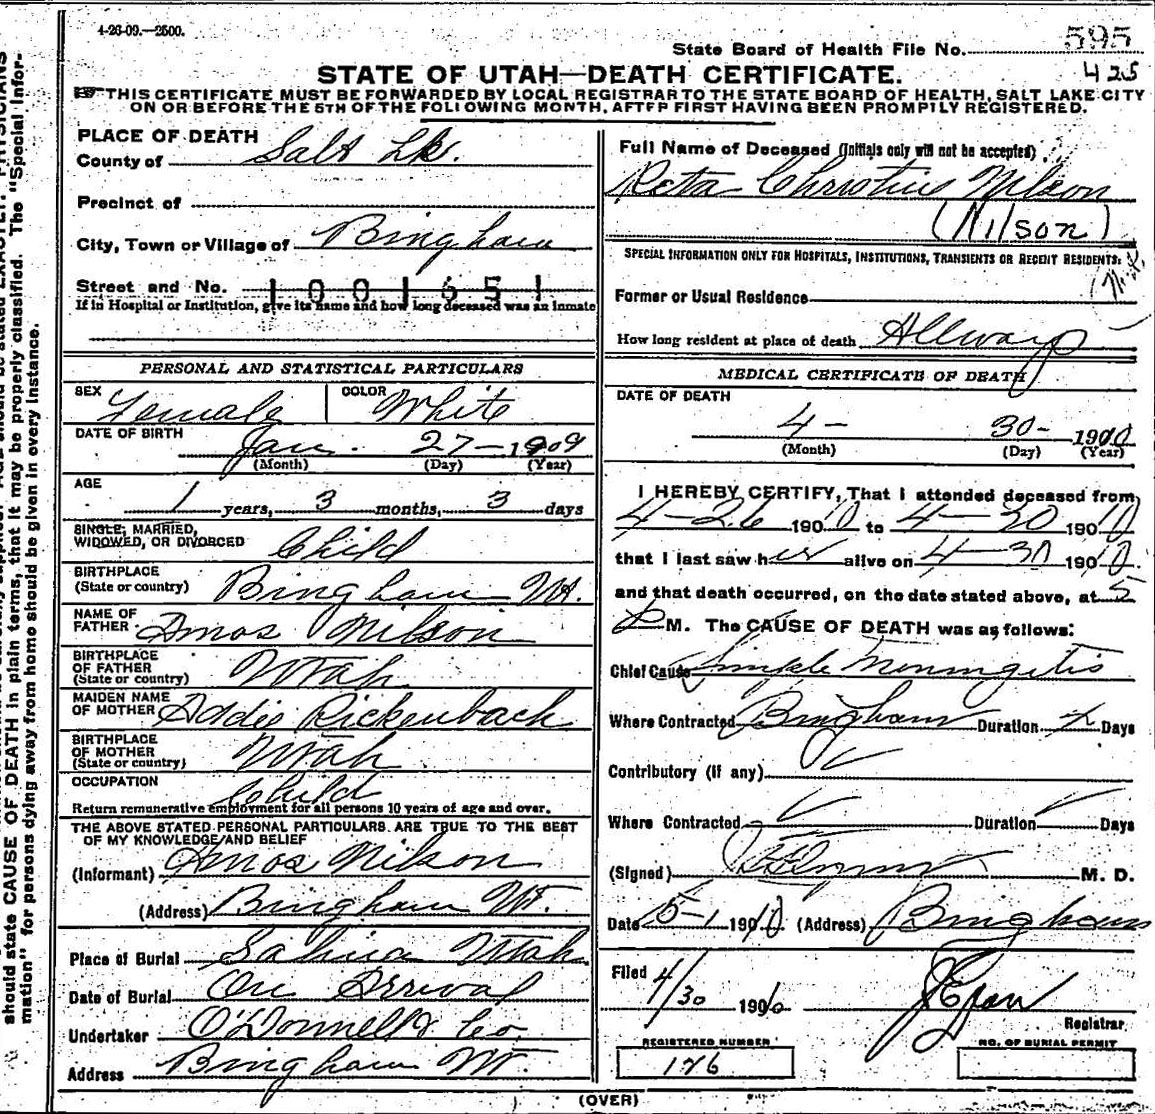 4-26-09.—2500.
State Board of Health File No. 595
425
STATE OF UTAH—DEATH CERTIFICATE.
THIS CERTIFICATE MUST BE FORWARDED BY LOCAL REGISTRAR TO THE STATE BOARD OF HEALTH, SALT LAKE CITY
ON OR BEFORE THE 5TH OF THE FOLLOWING MONTH, AFTER FIRST HAVING BEEN PROMPTLY REGISTERED.
PLACE OF DEATH
County of Salt Lk.
Precinct of
City, Town or Village of Bingham
Street and No. 1001651
If in Hospital or Institution, give its name and how long deceased was an inmate
PERSONAL AND STATISTICAL PARTICULARS
SEX Female COLOR White
DATE OF BIRTH Jan. 27-1909
(Month) (Day) (Year)
AGE
1 years, 3 months, 3 days
SINGLE, MARRIED,
WIDOWED, OR DIVORCED Child
BIRTHPLACE
(State or country) Bingham Ut.
NAME OF
FATHER Amos Nilson
BIRTHPLACE
OF FATHER
(State or country) Utah
MAIDEN NAME
OF MOTHER Addie Rickenbach
BIRTHPLACE
OF MOTHER
(State or country) Utah
OCCUPATION Child
Return remunerative employment for all persons 10 years of age and over.
THE ABOVE STATED PERSONAL PARTICULARS ARE TRUE TO THE BEST
OF MY KNOWLEDGE AND BELIEF
(Informant) Amos Nilson
(Address) Bingham Ut.
Place of Burial Salina Utah
Date of Burial On Arrival
Undertaker O'Donnell & Co
Address Bingham Ut.
Full Name of Deceased (Initials only will not be accepted)
Reta Christine Nilson
(Nilson)
SPECIAL INFORMATION ONLY FOR HOSPITALS, INSTITUTIONS, TRANSIENTS OR RECENT RESIDENTS:
Former or Usual Residence
How long resident at place of death Allways
MEDICAL CERTIFICATE OF DEATH
DATE OF DEATH
4- 30- 1910
(Month) (Day) (Year)
I HEREBY CERTIFY, That I attended deceased from
4-26 1910 to 4-30 1910
that I last saw her alive on 4-30 1910.
and that death occurred, on the date stated above, at 5
P M. The CAUSE OF DEATH was as follows:
Chief Cause Simple Meningitis
Where Contracted Bingham Duration Days
Contributory (if any)
Where Contracted Duration Days
(Signed) M. D.
Date 5-1 1910 (Address) Bingham
Filed 4/30 1910
Registrar
REGISTERED NUMBER
176
NO. OF BURIAL PERMIT
(OVER)
should state CAUSE OF DEATH in plain terms, that it may be properly classified. The "Special Infor-
mation" for persons dying away from home should be given in every instance.